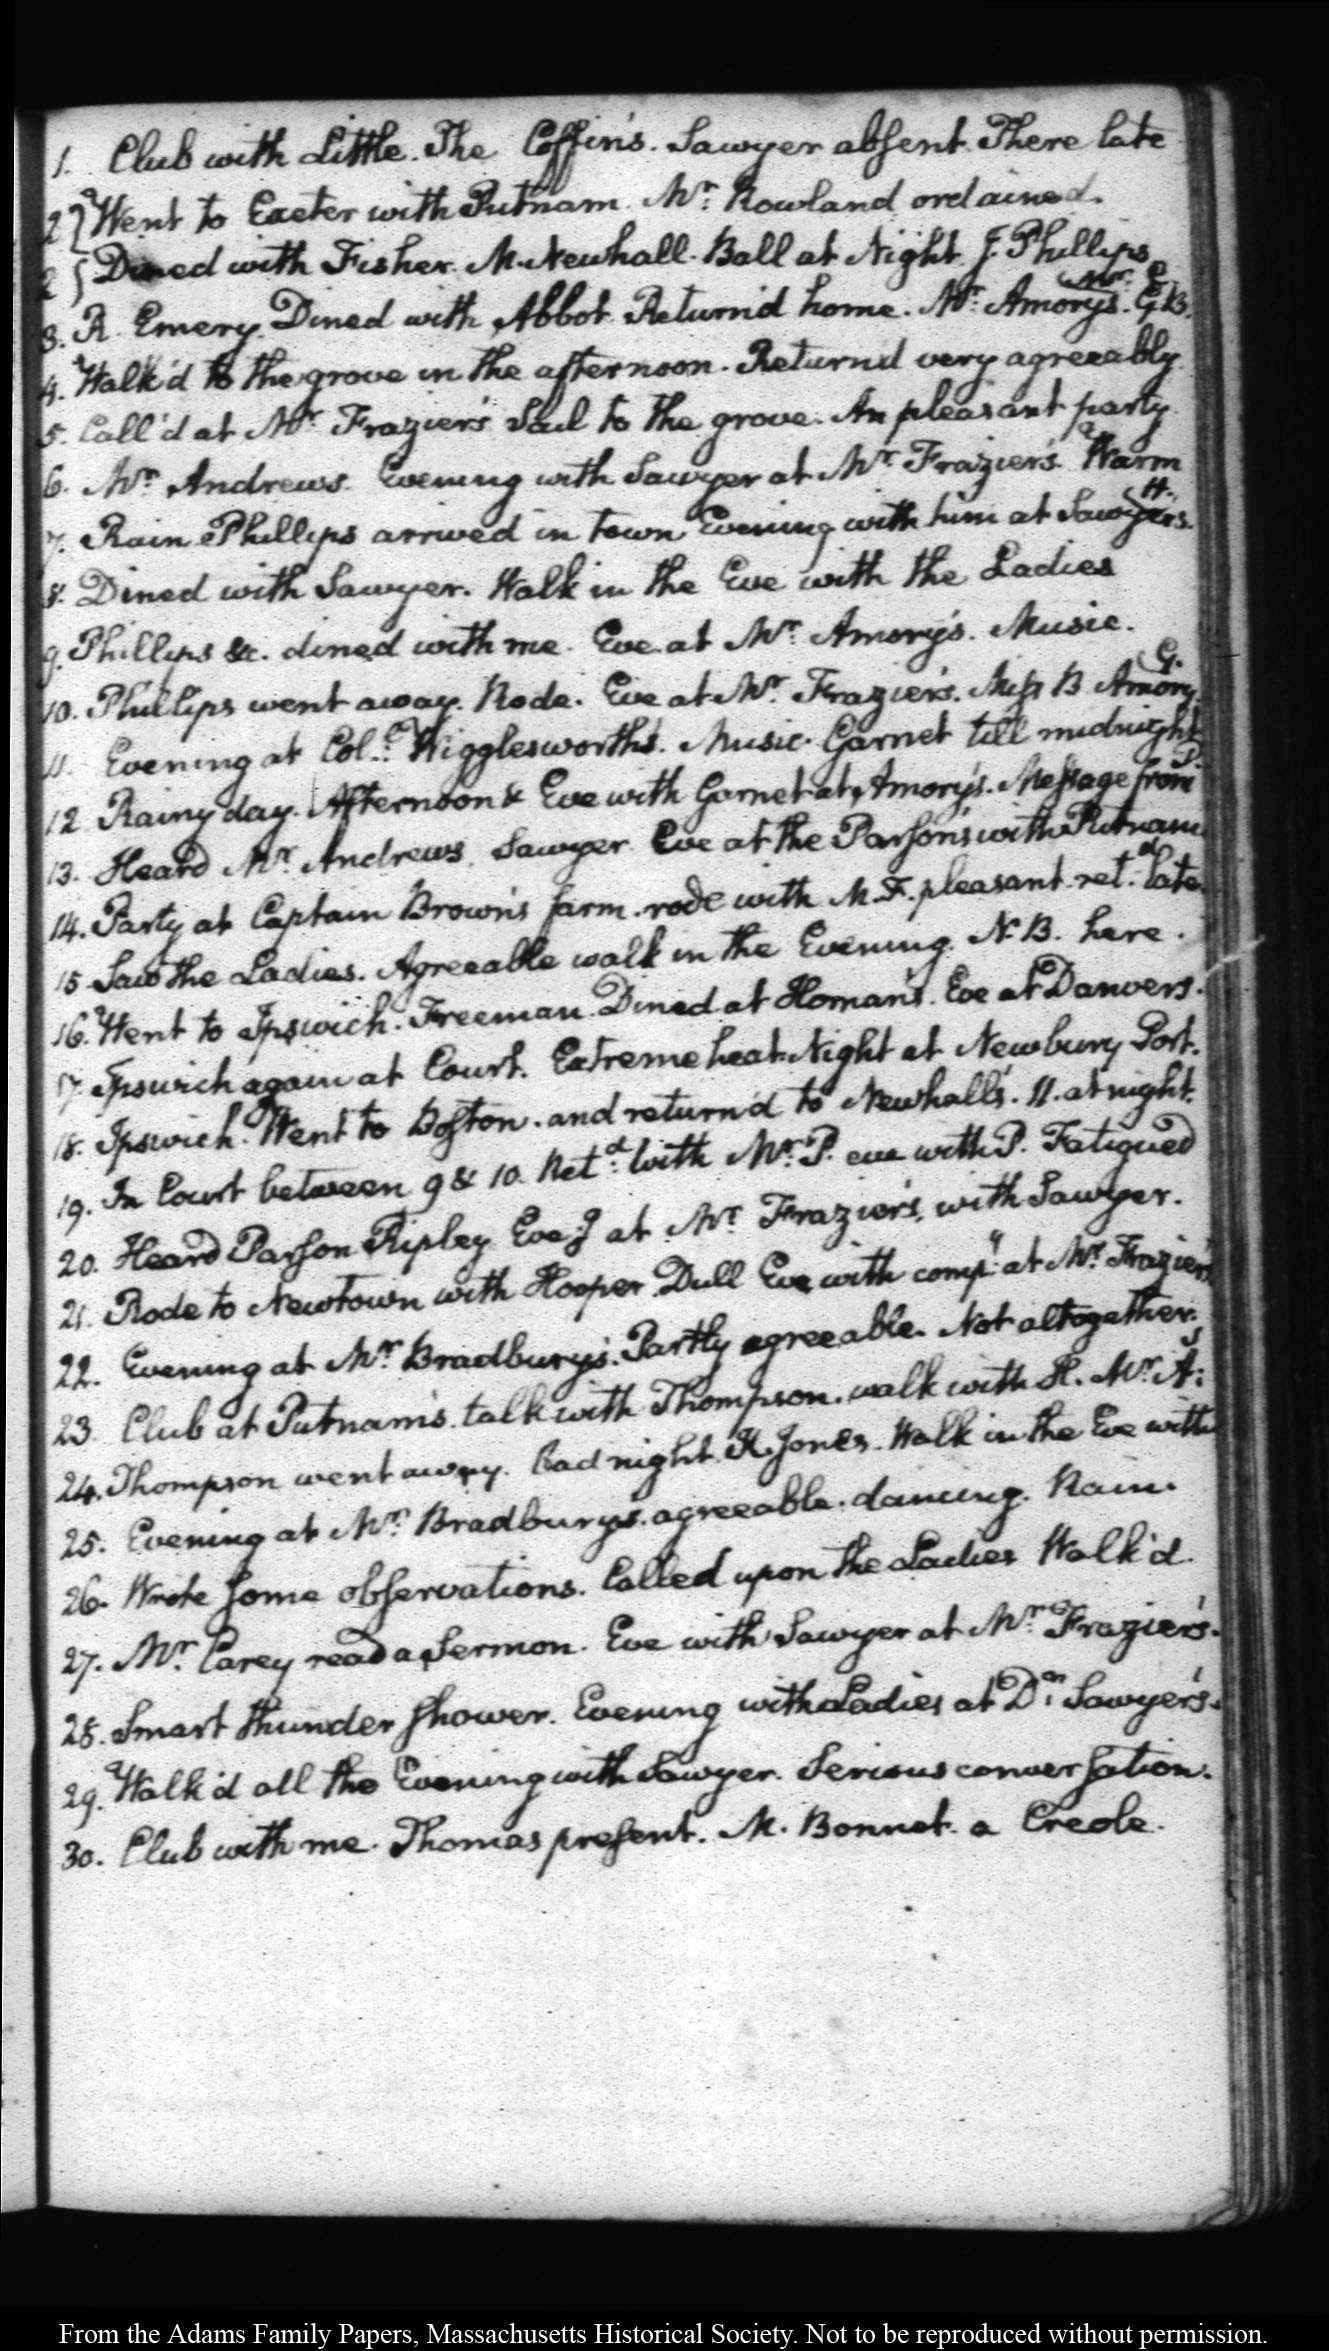 1. Club with Little. The Coffin's. Sawyer absent. There late
2 } Went to Exeter with Putnam. Mr: Rowland ordained.
2 } Dined with Fisher. M. Newhall. Ball at Night. J. Phillips
3. R. Emery. Dined with Abbot. Return'd home. Mr: Amory's.
4. Walk'd to the grove in the afternoon. Return'd very agreeably.
5. Call'd at Mr: Frazier's Sail to the grove. An pleasant party
6. Mr: Andrews. Evening with Sawyer at Mr: Frazier's. Warm
7. Rain. Phillips arrived in town. Evening with him at Sawyer's. H.
8. Dined with Sawyer. Walk in the Eve with the Ladies
9. Phillips &c. dined with me. Eve at Mr: Amory's. Music.
10. Phillips went away. Rode. Eve at Mr: Frazier's. Miss B Amory G.
11. Evening at Col:l Wigglesworth's. Music. Garnet till midnight
12 Rainy day. Afternoon & Eve with Garnet at Amory's. Message from P.
13. Heard Mr: Andrews. Sawyer. Eve at the Parson's with Putnam
14. Party at Captain Brown's farm. rode with M.F. pleasant. ret:d late.
15 Saw the Ladies. Agreeable walk in the Evening. N.B. here.
16. Went to Ipswich. Freeman. Dined at Homan's. Eve at Danvers.
17. Ipswich again at Court. Extreme heat. Night at Newbury Port.
18. Ipswich. Went to Boston. and return'd to Newhall's. 11. at night.
19. In Court between 9 & 10. Ret:d with Mr: P. eve with P. Fatigued
20. Heard Parson Ripley Eve:g at Mr: Frazier's, with Sawyer.
21. Rode to Newtown with Hooper. Dull Eve with comp:y at Mr: Frazier's
22. Evening at Mr: Bradbury's. Partly agreeable. Not altogether.
23. Club at Putnam's. talk with Thompson. walk with H. Mr: A:s
24. Thompson went away. bad night. H. Jones. Walk in the Eve with
25. Evening at Mr: Bradbury's. agreeable. dancing. Rain.
26. Wrote some observations. Called upon the Ladies Walk'd.
27. Mr: Carey read a Sermon. Eve with Sawyer at Mr: Frazier's.
28. Smart thunder shower. Evening with Ladies at D:n Sawyer's.
29. Walk'd all the Evening with Sawyer. Serious conversation.
30. Club with me. Thomas present. M. Bonnet. a Creole.
From the Adams Family Papers, Massachusetts Historical Society. Not to be reproduced without permission.